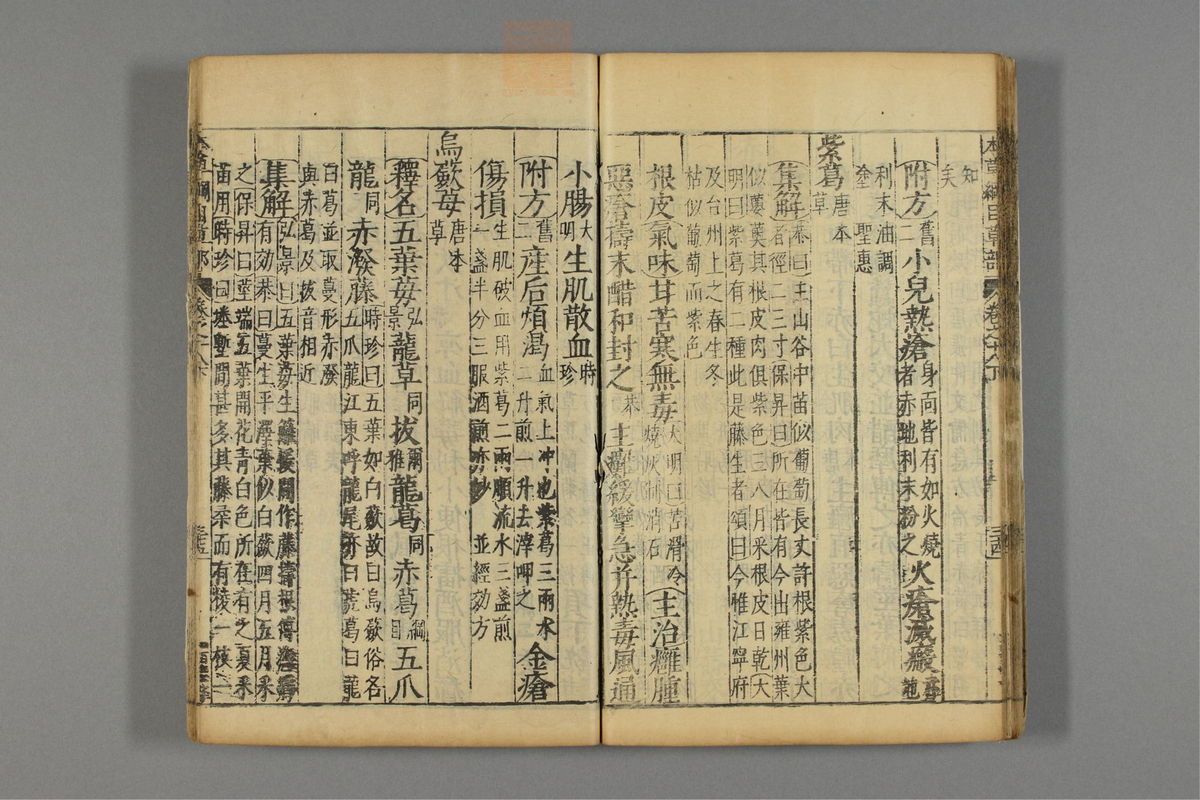 本草綱目草部 卷之十八下 三四
知
矣
附方舊二小兒熱瘡身面皆有如火燒者赤地利末粉之火瘡滅瘢赤地
利末油調塗聖惠
紫葛唐本草
集解恭曰生山谷中苗似葡萄長丈許根紫色大者徑二三寸保昇曰所在皆有今出雍州葉
似蘡薁其根皮肉俱紫色三八月采根皮日乾大明曰紫葛有二種此是藤生者頌曰今惟江寧府
及台州上之春生冬枯似葡萄而紫色
根皮氣味甘苦寒無毒大明曰苦滑冷燒灰制消石主治癰腫
惡瘡擣末醋和封之恭主癱緩攣急并熱毒風通
小腸大明生肌散血時珍
附方舊二產后煩渴血氣上冲也紫葛三兩水二升煎一升去滓呷之金瘡
傷損生肌破血用紫葛二兩順流水三盞煎一盞半分三服酒煎亦妙並經効方
烏蘞莓唐本草
釋名五葉莓弘景蘢草同拔爾雅蘢葛同赤葛綱目五爪
龍同赤潑藤時珍曰五葉如白蘞故曰烏蘞俗名五爪龍江東呼龍尾亦曰虎葛曰龍
曰葛並取蔓形赤潑與赤葛及拔音相近
集解弘景曰五葉莓生籬援間作藤擣根傅癰癤有効恭曰蔓生平澤葉似白蘞四月五月采
之保昇曰莖端五葉開花青白色所在有之夏采苗用時珍曰塍塹間甚多其藤柔而有稜一枝一
本草綱目草部 卷之十八下